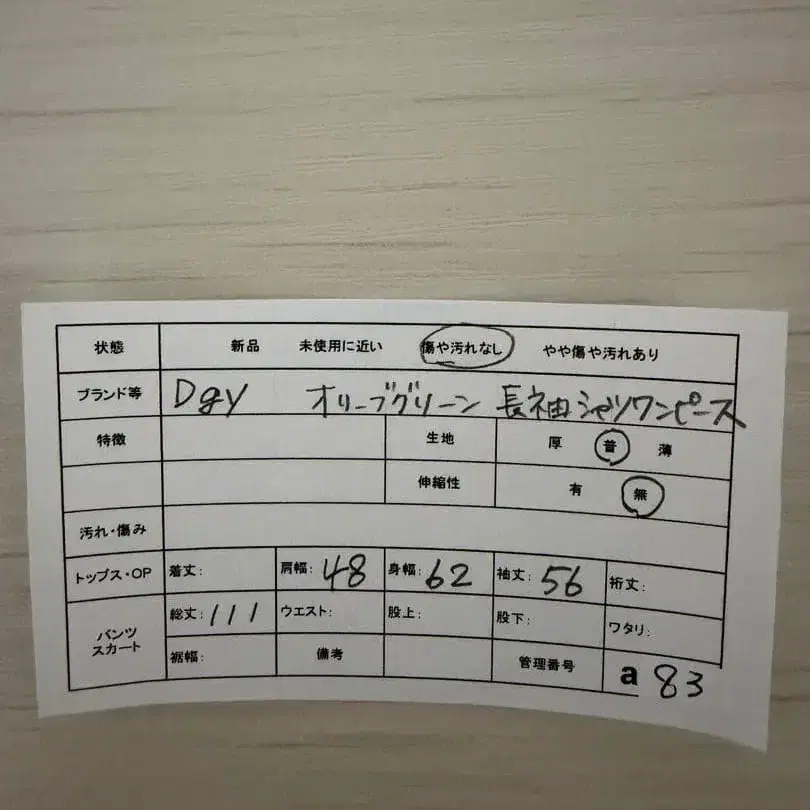 状態 新品 未使用に近い 傷や汚れなし やや傷や汚れあり
ブランド等 Dgy オリーブグリーン 長袖シャツワンピース
特徴 生地 厚 普 薄
伸縮性 有 無
汚れ・傷み
トップス・OP 着丈: 肩幅: 48 身幅: 62 袖丈: 56 裄丈:
パンツ スカート 総丈: 111 ウエスト: 股上: 股下: ワタリ:
裾幅: 備考 管理番号 a 83